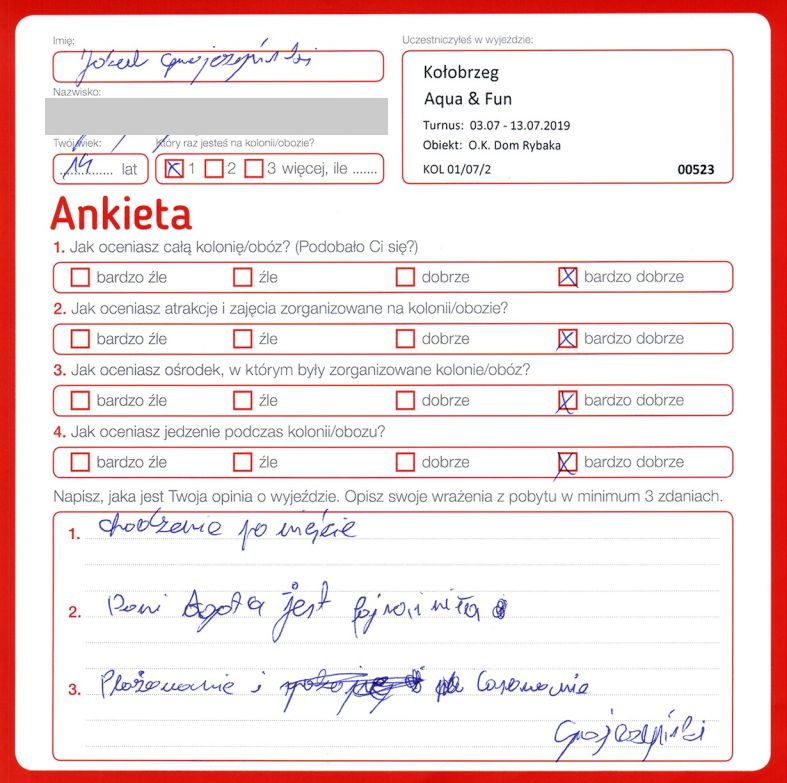 Imię:
Uczestniczyłeś w wyjeździe:
Nazwisko:
Kołobrzeg
Aqua & Fun
Turnus: 03.07 - 13.07.2019
Obiekt: O.K. Dom Rybaka
KOL 01/07/2 00523
Twój wiek: Który raz jesteś na kolonii/obozie?
14 lat 1 2 3 więcej, ile .......
Ankieta
1. Jak oceniasz całą kolonię/obóz? (Podobało Ci się?)
bardzo źle źle dobrze bardzo dobrze
2. Jak oceniasz atrakcje i zajęcia zorganizowane na kolonii/obozie?
bardzo źle źle dobrze bardzo dobrze
3. Jak oceniasz ośrodek, w którym były zorganizowane kolonie/obóz?
bardzo źle źle dobrze bardzo dobrze
4. Jak oceniasz jedzenie podczas kolonii/obozu?
bardzo źle źle dobrze bardzo dobrze
Napisz, jaka jest Twoja opinia o wyjeździe. Opisz swoje wrażenia z pobytu w minimum 3 zdaniach.
1. chodzenie po mieście
2. Pani Agata jest fajna i miła
3. Plażowanie i